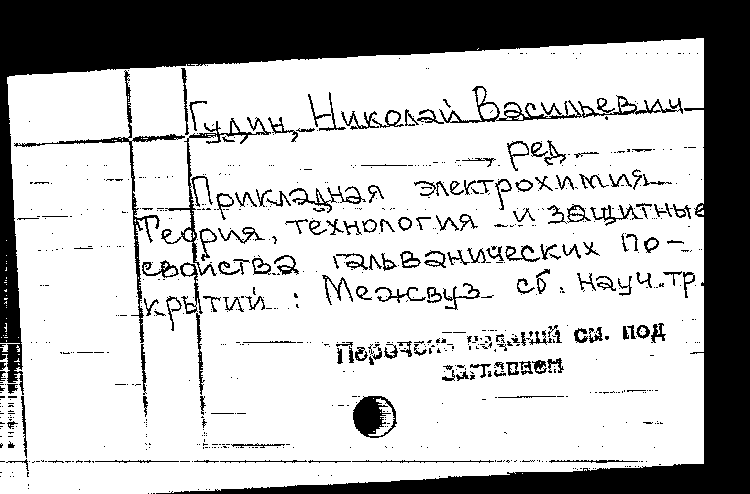 Гудин, Николай Васильевич
, ред.
Прикладная электрохимия
Теория, технология и защитные
свойства гальванических по-
крытий : Межвуз сб. науч.тр.
Перечень изданий см. под
заглавием